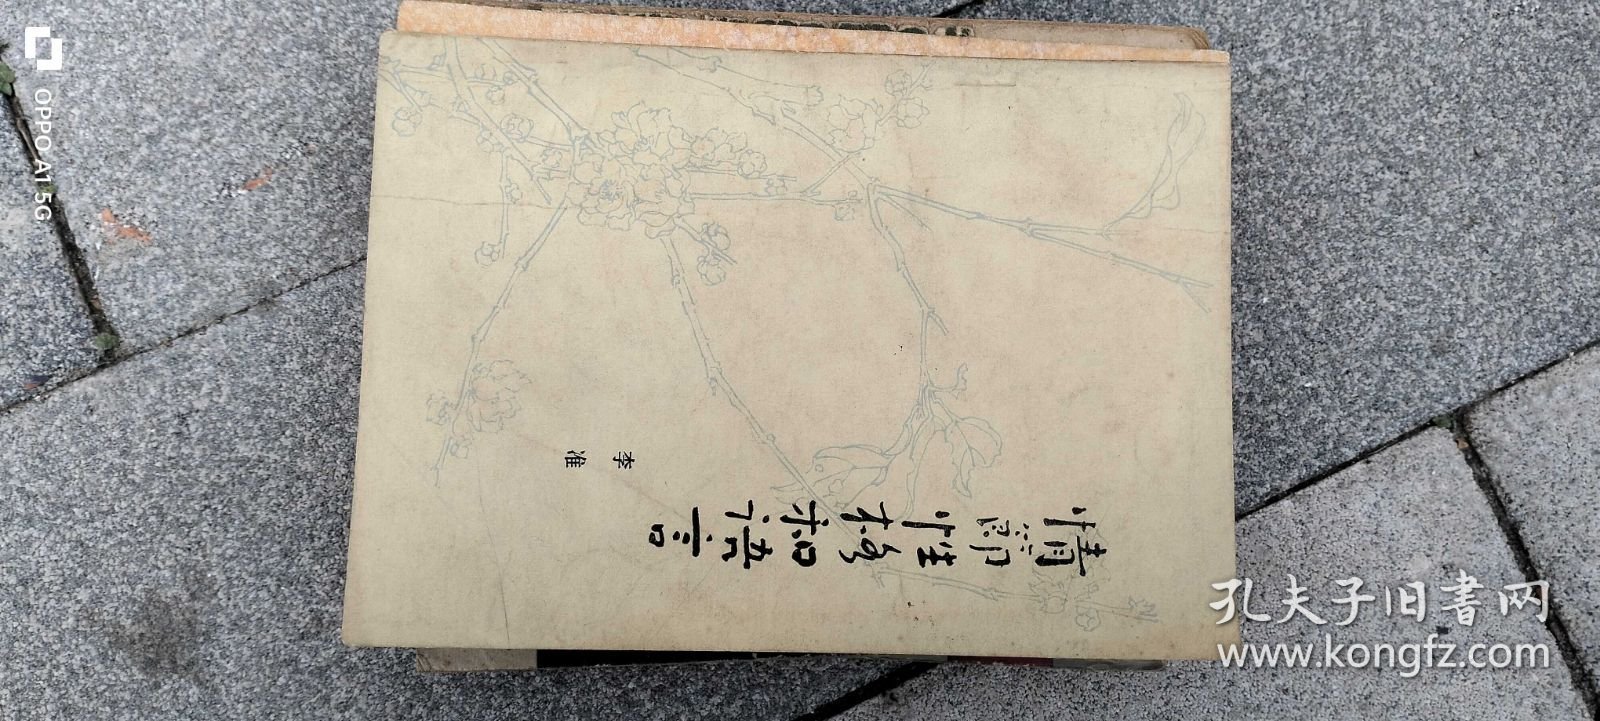 情节性格和语言
李准
OPPO A1 5G
孔夫子旧书网
www.kongfz.com